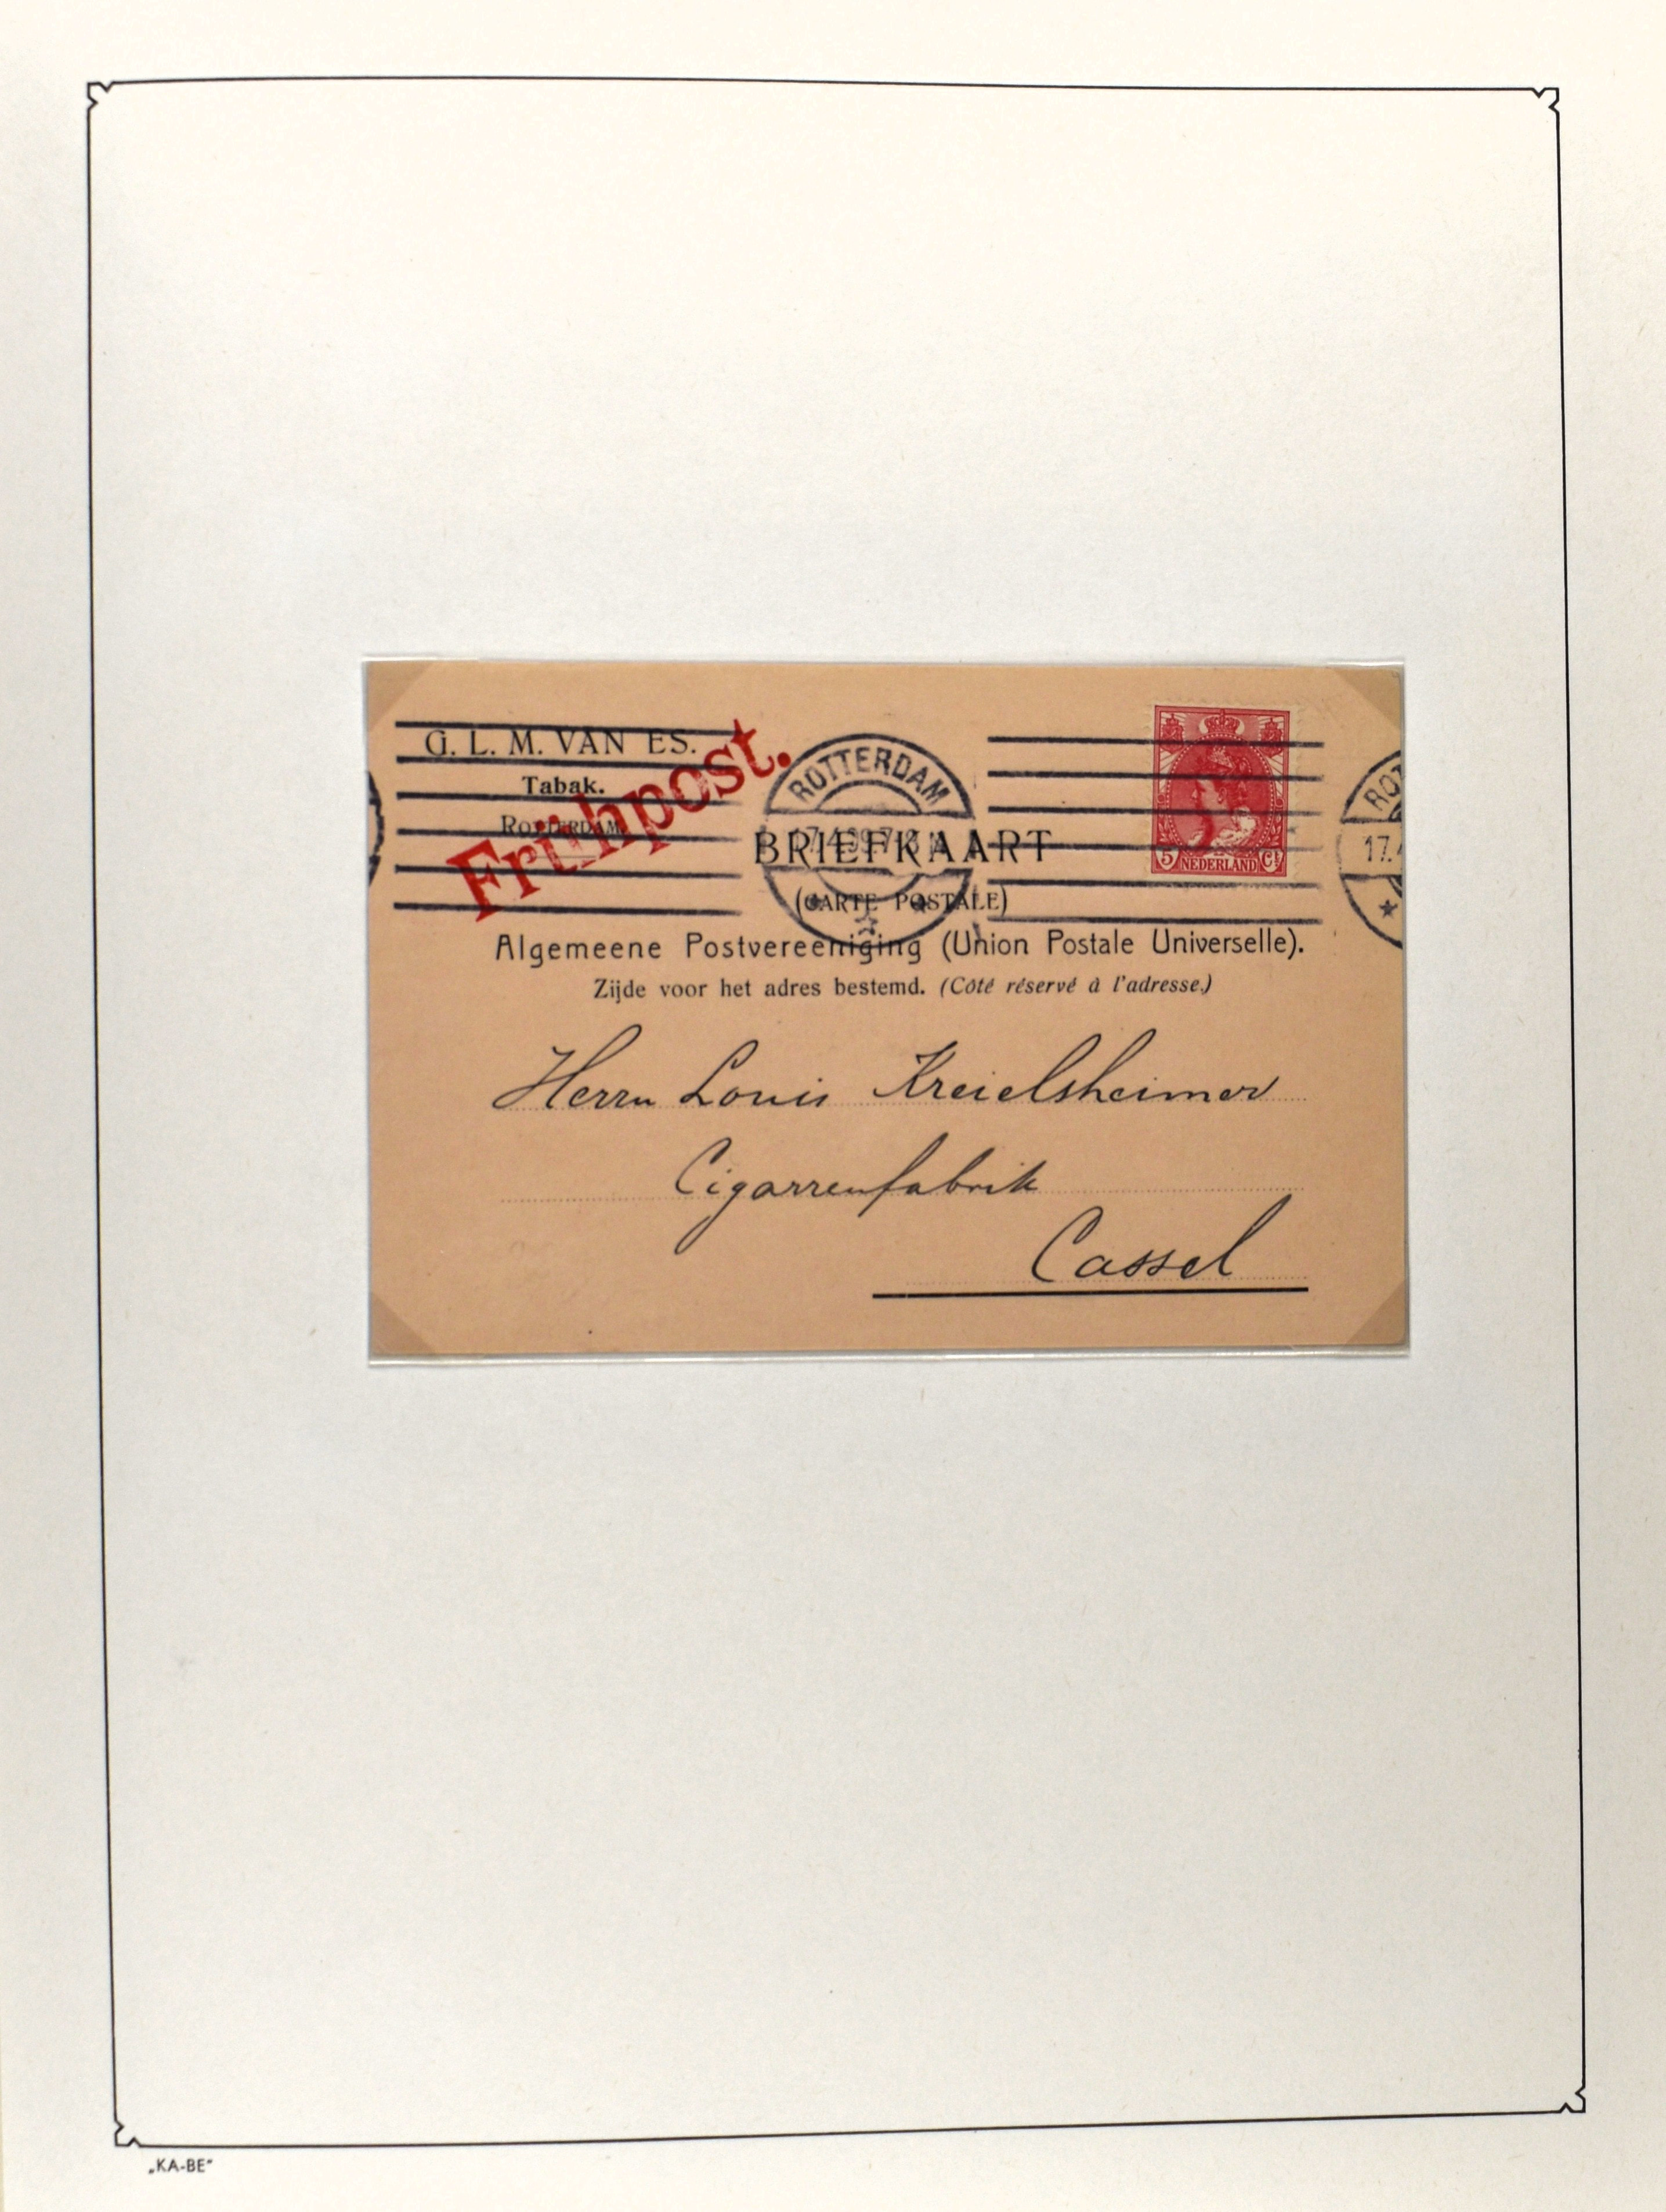 G. L. M. VAN ES.
Tabak.
ROTTERDAM
Frühpost.
ROTTERDAM
BRIEFKAART
(CARTE POSTALE)
5 NEDERLAND Ct
17.
Algemeene Postvereeniging (Union Postale Universelle).
Zijde voor het adres bestemd. (Côté réservé à l'adresse.)
Herrn Louis Kreielsheimer
Cigarrenfabrik
Cassel
„KA-BE"